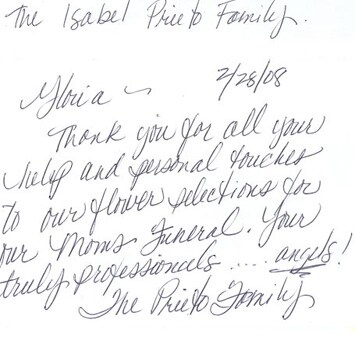 The Isabel Prieto Family.
2/28/08
Gloria ~
Thank you for all your
help and personal touches
to our flower selections for
our Moms Funeral. Your
truly professionals .... angels!
The Prieto Family